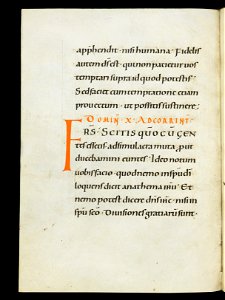 apphendit · nisi humana · Fidelis
autem d̅s̅ est · qui non patietur vos
temptari supra id quod potestis ·
Sed faciet cum temptatione etiam
prouectum · ut possitis sustinere ·
DOMIN̅ X · AD CORINT̅
FRS · SCITIS QUO CU̅ GEN
tis essetis ad simulacra muta, prut
ducebamini euntes · Ideo notum
uobis facio · quod nemo in sp̅u d̅i
loquens dicit anathema ih̅u · Et
nemo potest dicere d̅n̅s ih̅c · nisi in
sp̅u s̅c̅o · Diuisiones gratiaru̅ sunt ·